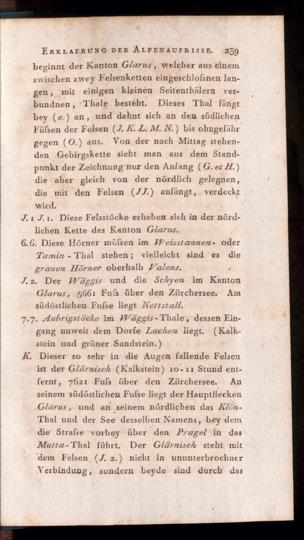 ERKLAERUNG DER ALPENAUFRISSE. 239
beginnt der Kanton Glarus, welcher aus einem
zwischen zwey Felsenketten eingeschloſsnen lan-
gen, mit einigen kleinen Seitenthälern ver-
bundnen, Thale besteht. Dieses Thal fängt
bey (e.) an, und dehnt sich an den südlichen
Füſsen der Felsen (J. K. L. M. N.) bis ohngefähr
gegen (O.) aus. Von der nach Mittag stehen-
den Gebirgskette sieht man aus dem Stand-
punkt der Zeichnung nur den Anfang (G. et H.)
die aber gleich von der nördlich gelegnen,
die mit den Felsen (JJ.) anfängt, verdeckt
wird.
J. 1 J. 1. Diese Felsstöcke erheben sich in der nörd-
lichen Kette des Kanton Glarus.
6. 6. Diese Hörner müſsen im Weisstannen- oder
Tamin-Thal stehen; vielleicht sind es die
grauen Hörner oberhalb Valens.
J. 2. Der Wäggis und die Schyen im Kanton
Glarus, 5661 Fuſs über den Zürchersee. Am
südöstlichen Fuſse liegt Nettstall.
7. 7. Aubrigstöcke im Wäggis-Thale, dessen Ein-
gang unweit dem Dorfe Lachen liegt. (Kalk-
stein und grüner Sandstein.)
K. Dieser so sehr in die Augen fallende Felsen
ist der Glärnisch (Kalkstein) 10-11 Stund ent-
fernt, 7621 Fuſs über den Zürchersee. An
seinem südöstlichen Fuſse liegt der Hauptflecken
Glarus, und an seinem nördlichen das Klön-
Thal und der See desselben Namens, bey dem
die Straſse vorbey über den Pragel in das
Mutta-Thal führt. Der Glärnisch steht mit
dem Felsen (J. 2.) nicht in ununterbrochner
Verbindung, sondern beyde sind durch das